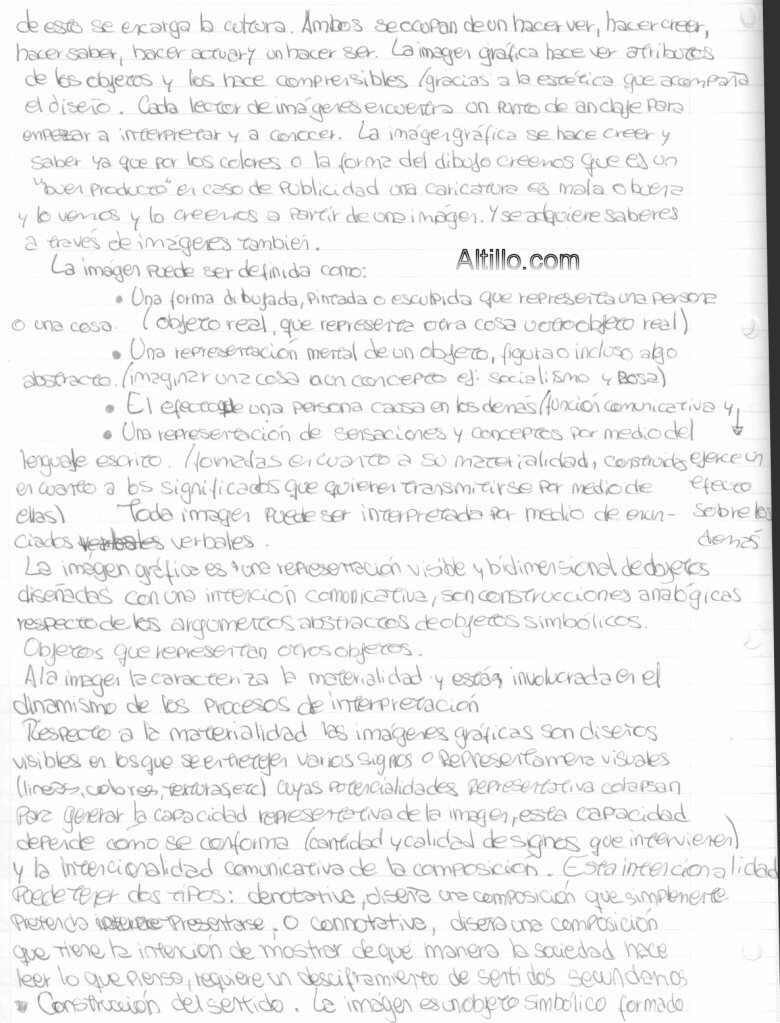 de esto se encarga la cultura. Ambos se ocupan de un hacer ver, hacer creer,
hacer saber, hacer actuar y un hacer ser. La imagen gráfica hace ver atributos
de los objetos y los hace comprensibles (gracias a la estética que acompaña
el diseño. Cada lector de imágenes encuentra un punto de anclaje para
empezar a interpretar y a conocer. La imágen gráfica se hace creer y
saber ya que por los colores o la forma del dibujo creemos que es un
"buen producto" en caso de publicidad una caricatura es mala o buena
y lo vemos y lo creemos a partir de una imágen. Y se adquiere saberes
a través de imágenes también.
Altillo.com
La imágen puede ser definida como:
• Una forma dibujada, pintada o esculpida que representa una persona
o una cosa. (objeto real, que representa otra cosa u otro objeto real)
• Una representación mental de un objeto, figura o incluso algo
abstracto. (imaginar una cosa o un concepto ej: socialismo y Rosa)
• El efecto que una persona causa en los demás (función comunicativa y
• Una representación de sensaciones y conceptos por medio del
lenguaje escrito. (formadas en cuanto a su materialidad, construidas ejerce un
en cuanto a los significados que quieren transmitirse por medio de efecto
ellas) Toda imagen puede ser interpretada por medio de enun- sobre los
ciados verbales verbales. demás
La imagen gráfica es una representación visible y bidimensional de objetos
diseñadas con una intención comunicativa, son construcciones analógicas
respecto de los argumentos abstractos de objetos simbólicos.
Objetos que representan otros objetos.
A la imagen la caracteriza la materialidad y está involucrada en el
dinamismo de los procesos de interpretación
Respecto a la materialidad las imágenes gráficas son diseños
visibles en los que se entretejen varios signos o Representamena visuales
(lineas, colores, texturas etc) cuyas potencialidades representativa colapsan
para generar la capacidad representativa de la imagen, esta capacidad
depende como se conforma (cantidad y calidad de signos que intervienen)
y la intencionalidad comunicativa de la composición. Esta intencionalidad
puede tener dos tipos: denotativa, diseña una composición que simplemente
pretenda presentarse, o connotativa, diseña una composición
que tiene la intención de mostrar de qué manera la sociedad hace
leer lo que piensa, requiere un desciframiento de sentidos secundarios
• Construcción del sentido. La imágen es un objeto simbólico formado